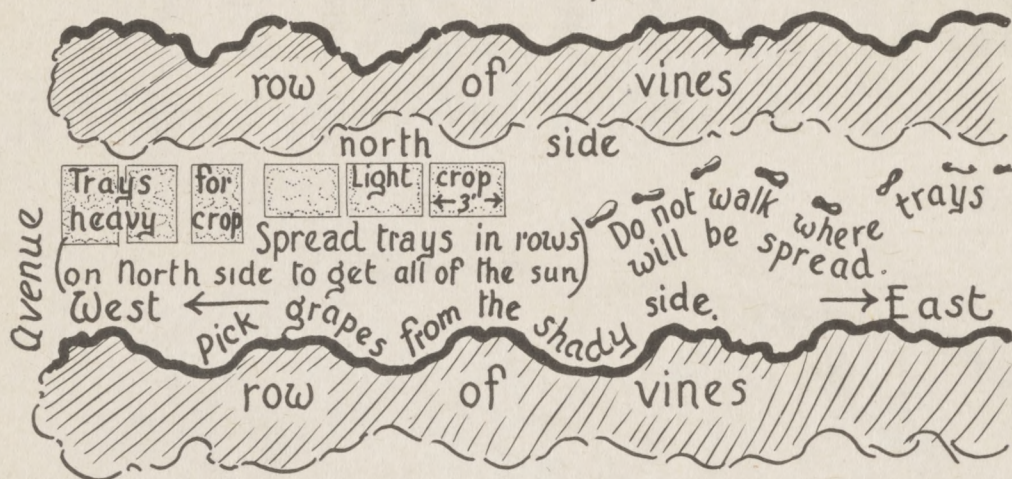 row of vines
north side
Trays for
heavy crop
Light crop
3'
Avenue
Spread trays in rows
(on North side to get all of the sun)
Do not walk where trays
will be spread.
West East
Pick grapes from the shady side.
row of vines